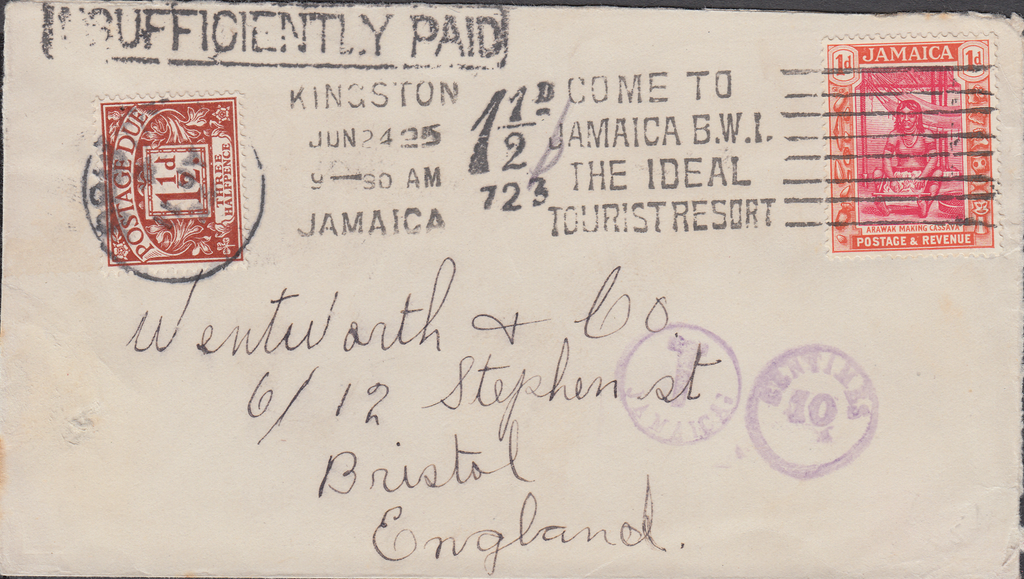 INSUFFICIENTLY PAID
KINGSTON
JUN 24 35
9 — 30 AM
JAMAICA
1 1/2 D
723
COME TO
JAMAICA B.W.I.
THE IDEAL
TOURIST RESORT
POSTAGE DUE
1½d
THREE
HALFPENCE
JAMAICA
1d 1d
ARAWAK MAKING CASSAVA
POSTAGE & REVENUE
Wentworth & Co.
6/12 Stephen st
Bristol
England.
T
JAMAICA
CENTIMES
10